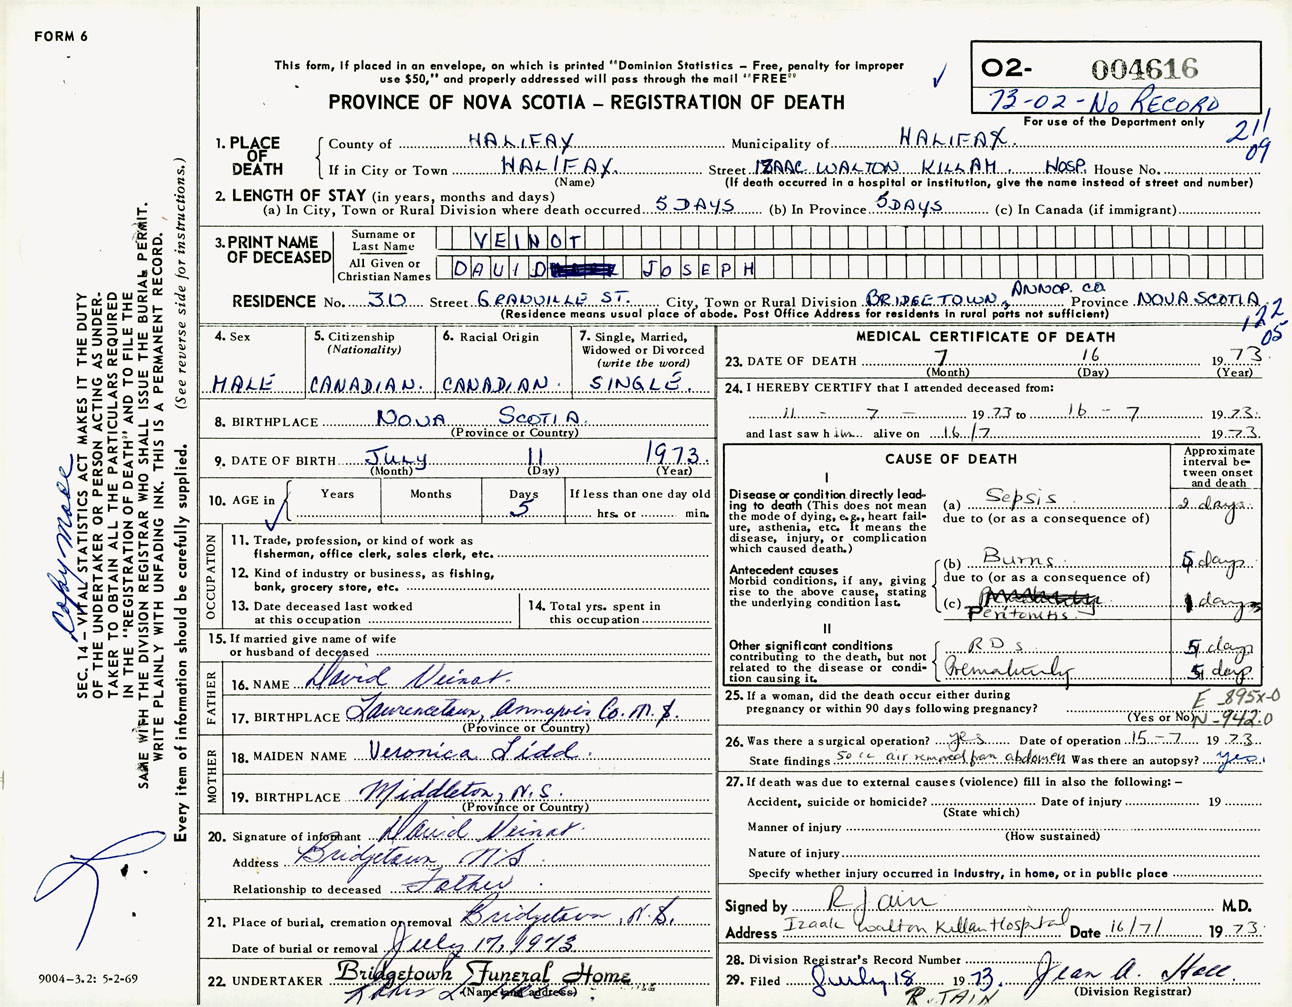 FORM 6
This form, if placed in an envelope, on which is printed "Dominion Statistics – Free, penalty for improper
use $50," and properly addressed will pass through the mail "FREE"
PROVINCE OF NOVA SCOTIA – REGISTRATION OF DEATH
O2- 004616
73-02-No RECORD
For use of the Department only
211
09
1. PLACE OF DEATH
County of HALIFAX Municipality of HALIFAX
If in City or Town HALIFAX. Street IZAAC WALTON KILLAM HOSP. House No.
(Name) (If death occurred in a hospital or institution, give the name instead of street and number)
2. LENGTH OF STAY (in years, months and days)
(a) In City, Town or Rural Division where death occurred 5 DAYS (b) In Province 5 DAYS (c) In Canada (if immigrant)
3. PRINT NAME OF DECEASED
Surname or Last Name VEINOT
All Given or Christian Names DAVID JOSEPH
RESIDENCE No. 30 Street GRANVILLE ST. City, Town or Rural Division BRIDGETOWN, ANNOP. CO Province NOVA SCOTIA
(Residence means usual place of abode. Post Office Address for residents in rural parts not sufficient)
122
05
4. Sex MALE
5. Citizenship (Nationality) CANADIAN.
6. Racial Origin CANADIAN.
7. Single, Married, Widowed or Divorced (write the word) SINGLE.
8. BIRTHPLACE NOVA SCOTIA
(Province or Country)
9. DATE OF BIRTH JULY 11 1973.
(Month) (Day) (Year)
10. AGE in Years Months Days 5 If less than one day old
hrs. or min.
OCCUPATION
11. Trade, profession, or kind of work as
fisherman, office clerk, sales clerk, etc.
12. Kind of industry or business, as fishing,
bank, grocery store, etc.
13. Date deceased last worked
at this occupation
14. Total yrs. spent in
this occupation
15. If married give name of wife
or husband of deceased
FATHER
16. NAME David Veinot.
17. BIRTHPLACE Lawrencetown, Annapolis Co. N.S.
(Province or Country)
MOTHER
18. MAIDEN NAME Veronica Lidd.
19. BIRTHPLACE Middleton, N.S.
(Province or Country)
20. Signature of informant David Veinot.
Address Bridgetown N.S.
Relationship to deceased Father
21. Place of burial, cremation or removal Bridgetown, N.S.
Date of burial or removal July 17, 1973
22. UNDERTAKER Bridgetown Funeral Home
(Name and address)
MEDICAL CERTIFICATE OF DEATH
23. DATE OF DEATH 7 16 1973.
(Month) (Day) (Year)
24. I HEREBY CERTIFY that I attended deceased from:
11 - 7 - 1973 to 16 - 7 1973.
and last saw him alive on 16/7 1973.
CAUSE OF DEATH
Approximate interval between onset and death
I
Disease or condition directly leading to death (This does not mean the mode of dying, e.g., heart failure, asthenia, etc. It means the disease, injury, or complication which caused death.)
(a) Sepsis 2 days
due to (or as a consequence of)
Antecedent causes
Morbid conditions, if any, giving rise to the above cause, stating the underlying condition last.
(b) Burns 5 days
due to (or as a consequence of)
(c) Peritonitis. 1 days
II
Other significant conditions
contributing to the death, but not related to the disease or condition causing it.
RDS 5 days
Prematurity 5 days
25. If a woman, did the death occur either during
pregnancy or within 90 days following pregnancy?
(Yes or No)
E-895X-0
N-942.0
26. Was there a surgical operation? yes Date of operation 15-7 1973.
State findings 50 cc air removed from abdomen Was there an autopsy? yes.
27. If death was due to external causes (violence) fill in also the following: –
Accident, suicide or homicide? Date of injury 19
(State which)
Manner of injury
(How sustained)
Nature of injury
Specify whether injury occurred in Industry, in home, or in public place
Signed by R Jain M.D.
Address Izaak Walton Killam Hospital Date 16/7/ 1973.
28. Division Registrar's Record Number
29. Filed July 18 1973. Jean A. Hall.
(Division Registrar)
R. JAIN
SEC. 14 – VITAL STATISTICS ACT MAKES IT THE DUTY
OF THE UNDERTAKER OR PERSON ACTING AS UNDER-
TAKER TO OBTAIN ALL THE PARTICULARS REQUIRED
IN THE "REGISTRATION OF DEATH" AND TO FILE THE
SAME WITH THE DIVISION REGISTRAR WHO SHALL ISSUE THE BURIAL PERMIT.
WRITE PLAINLY WITH UNFADING INK. THIS IS A PERMANENT RECORD.
Every item of information should be carefully supplied. (See reverse side for instructions.)
Copy made
9004–3.2: 5-2-69